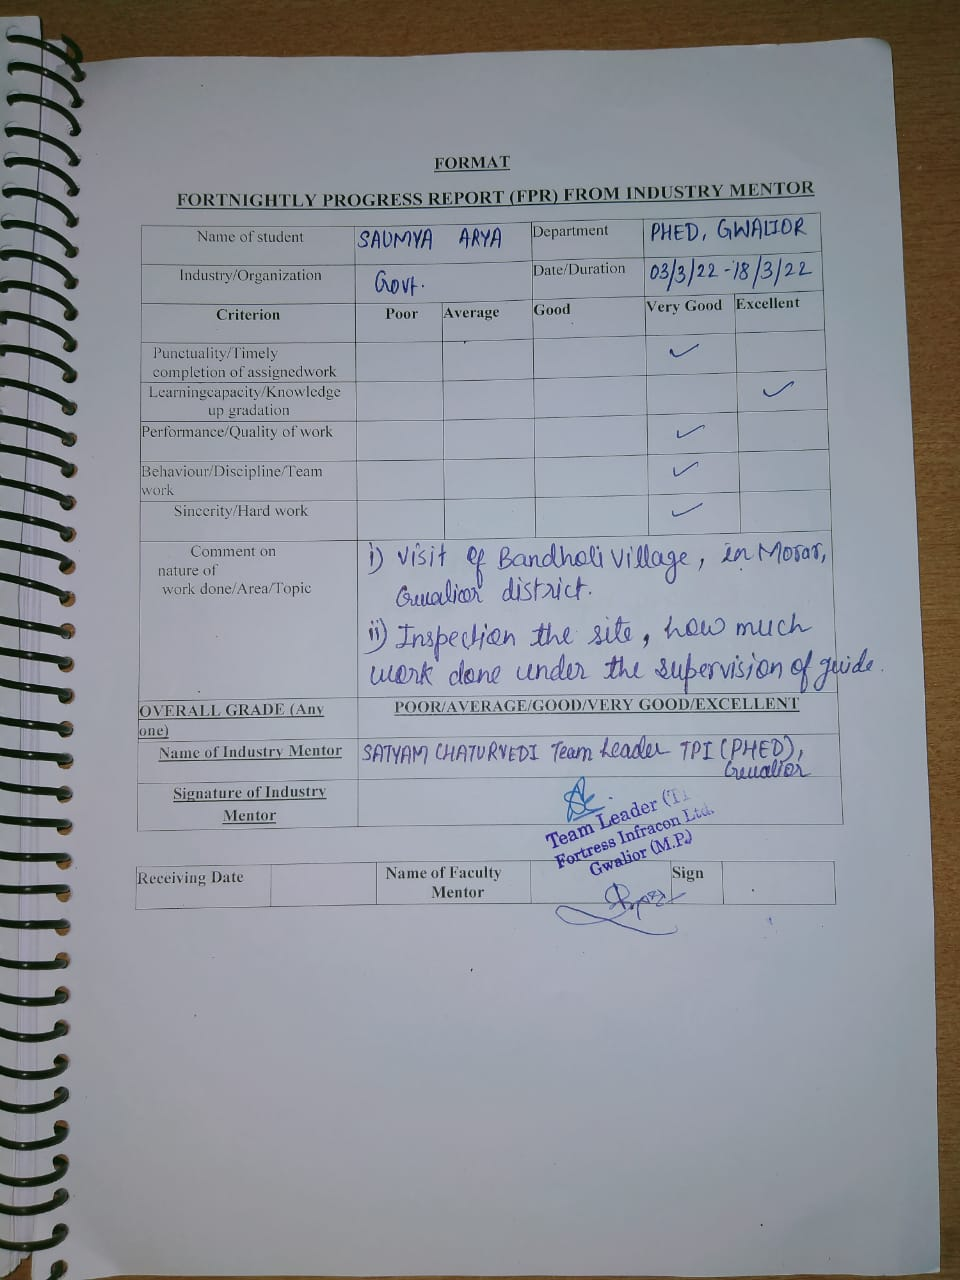 FORMAT
FORTNIGHTLY PROGRESS REPORT (FPR) FROM INDUSTRY MENTOR
Name of student SAUMYA ARYA Department PHED, GWALIOR
Industry/Organization Govt. Date/Duration 03/3/22 - 18/3/22
Criterion Poor Average Good Very Good Excellent
Punctuality/Timely
completion of assignedwork ✓
Learningcapacity/Knowledge ✓
up gradation
Performance/Quality of work ✓
Behaviour/Discipline/Team ✓
work
Sincerity/Hard work ✓
Comment on
nature of
work done/Area/Topic
i) Visit of Bandholi Village, in Morar,
Gwalior district.
ii) Inspection the site, how much
work done under the supervision of guide.
OVERALL GRADE (Any
one)
POOR/AVERAGE/GOOD/VERY GOOD/EXCELLENT
Name of Industry Mentor SATYAM CHATURVEDI Team Leader TPI (PHED),
Gwalior
Signature of Industry
Mentor
Team Leader
Fortress Infracon Ltd.
Gwalior (M.P.)
Receiving Date Name of Faculty Sign
Mentor